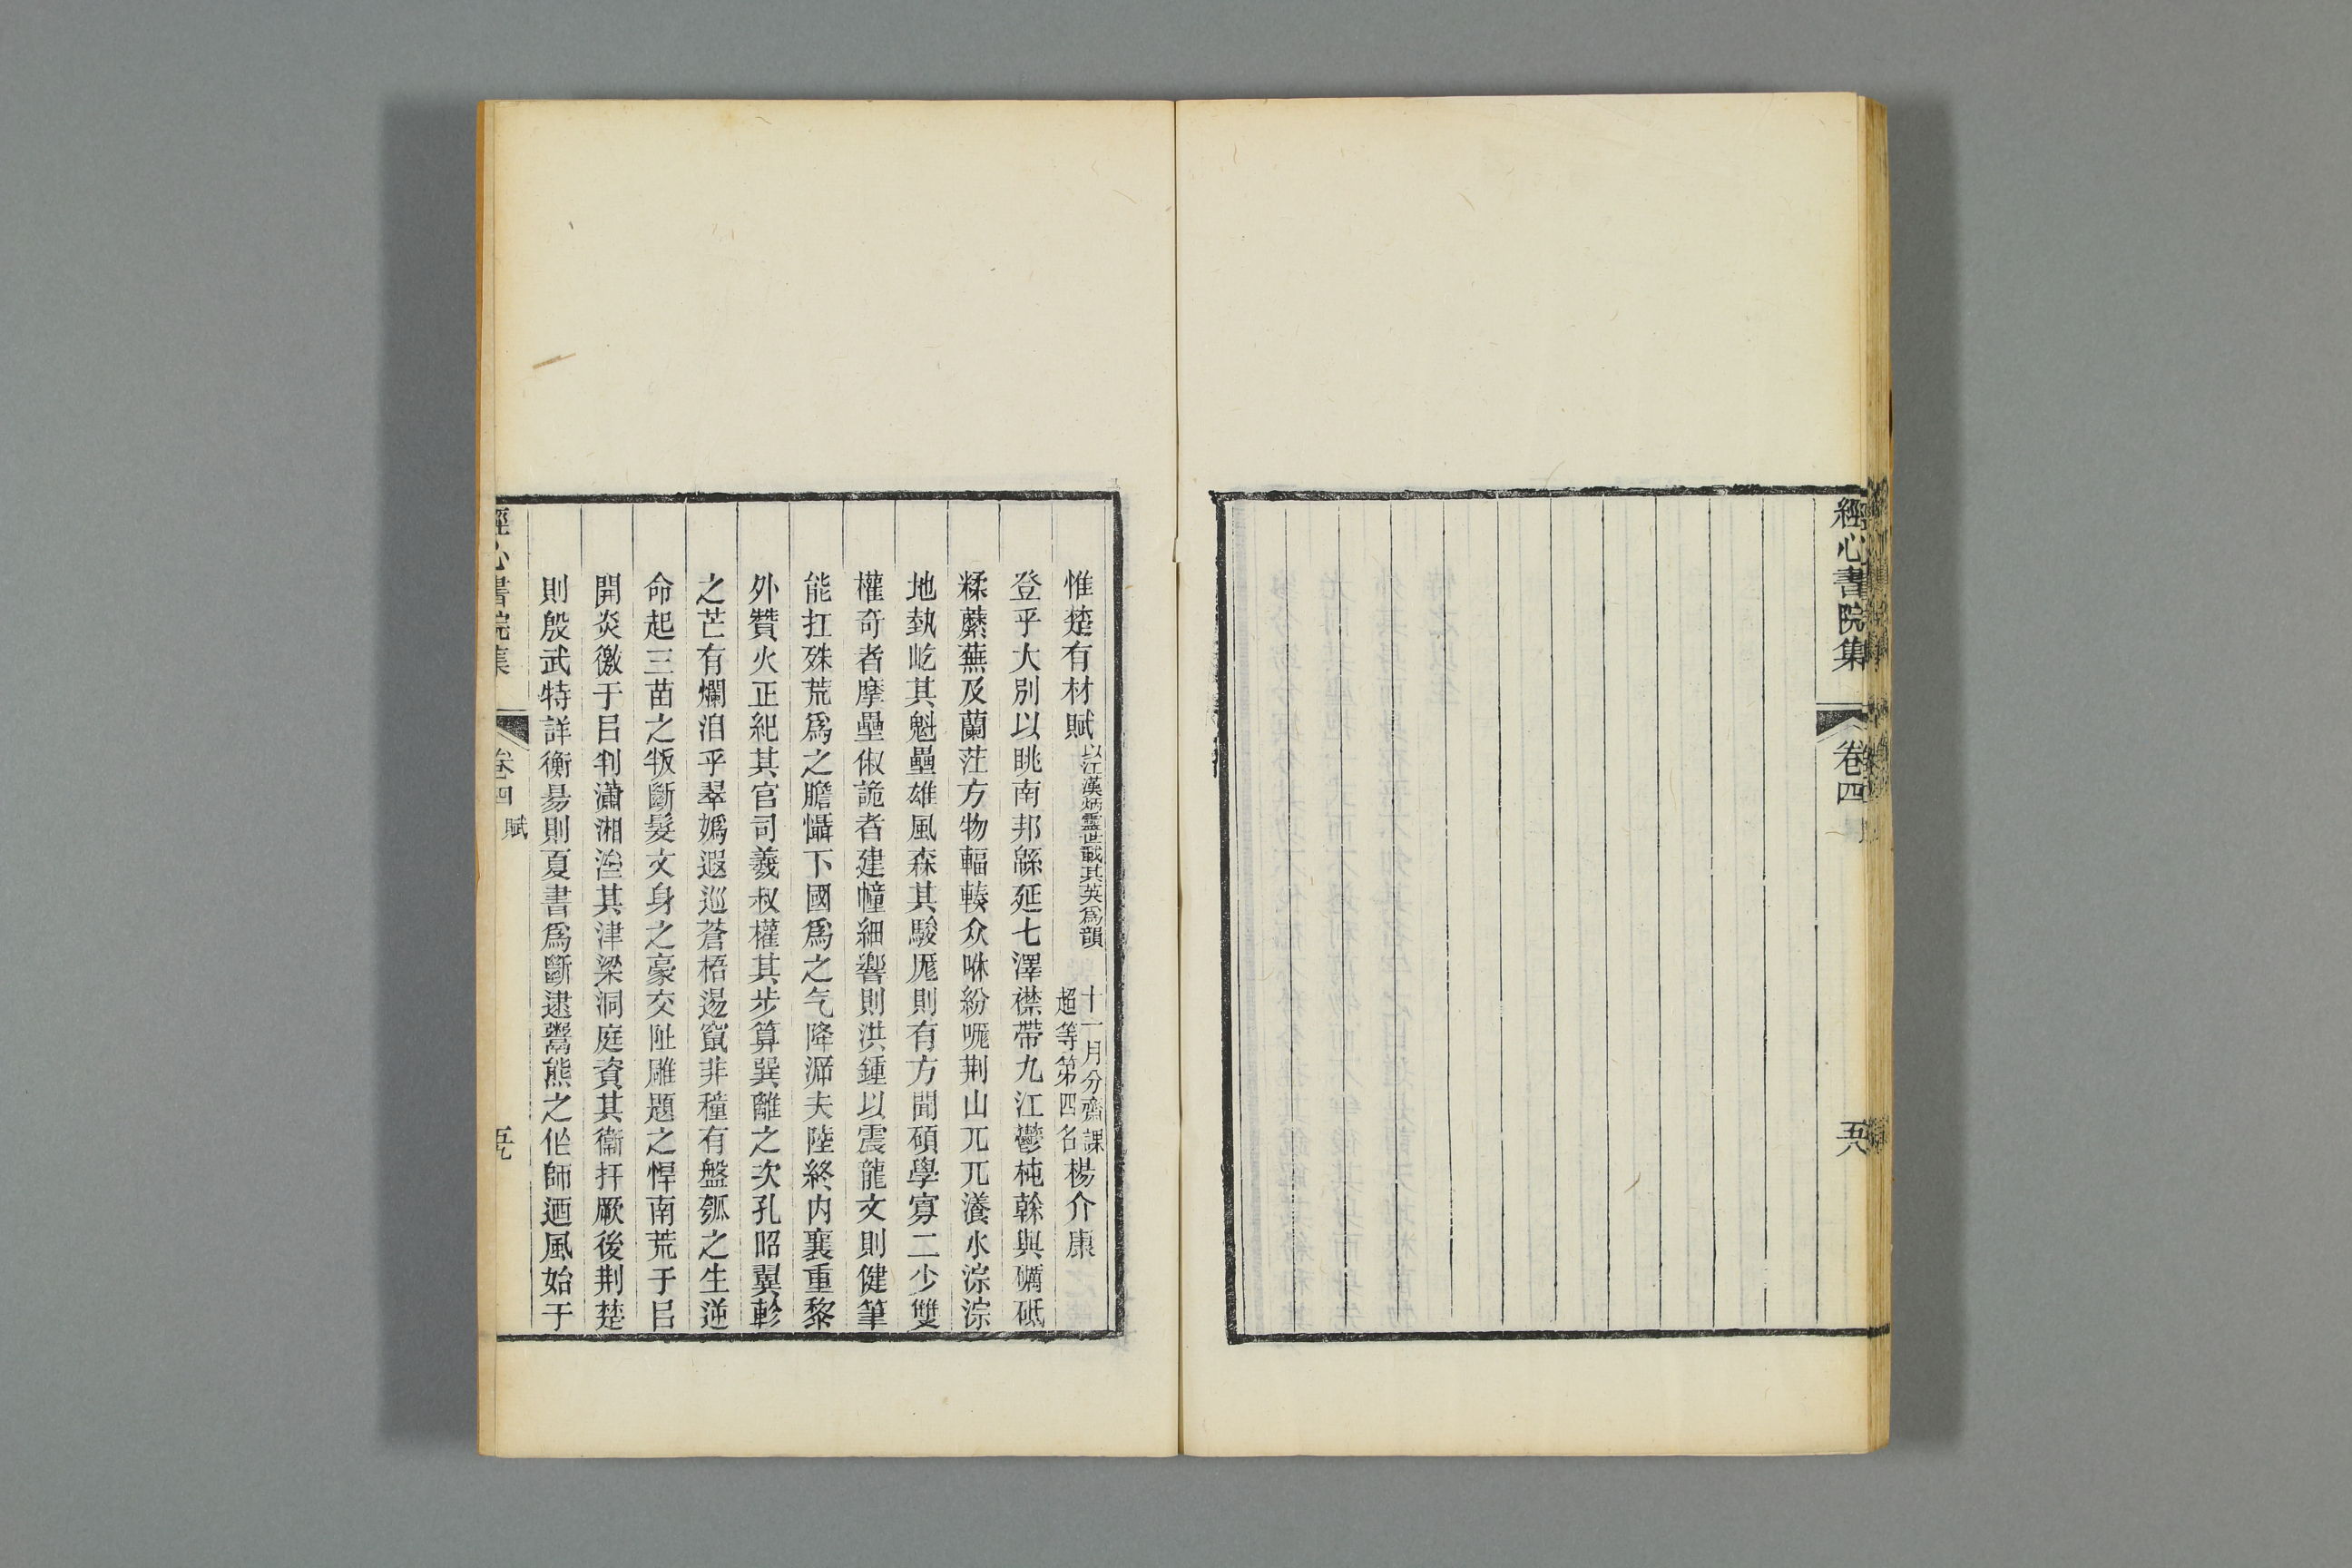 經心書院集
卷四
五八
惟楚有材賦 以江漢炳靈世載其英爲韻 十一月分齋課超等第四名 楊介康
登乎大別以眺南邦緜延七澤襟帶九江鬱杶榦與礪砥
糅蘪蕪及蘭茳方物輻輳众咻紛哤荆山兀兀瀁水淙淙
地埶屹其魁壘雄風森其駿厖則有方聞碩學寡二少雙
權奇者摩壘俶詭者建幢細響則洪鍾以震龍文則健筆
能扛殊荒爲之膽懾下國爲之气降溯夫陸終内襄重黎
外贊火正紀其官司羲叔權其步算巽離之次孔昭翼軫
之芒有爛洎乎翠嬀遐巡蒼梧逷竄非種有盤瓠之生逆
命起三苗之叛斷髮文身之豪交阯雕題之悍南荒于㠯
開炎徼于㠯判瀟湘洫其津梁洞庭資其衞扞厥後荆楚
則殷武特詳衡昜則夏書爲斷逮鬻熊之仳師迺風始于
經心書院集
卷四 賦
五九